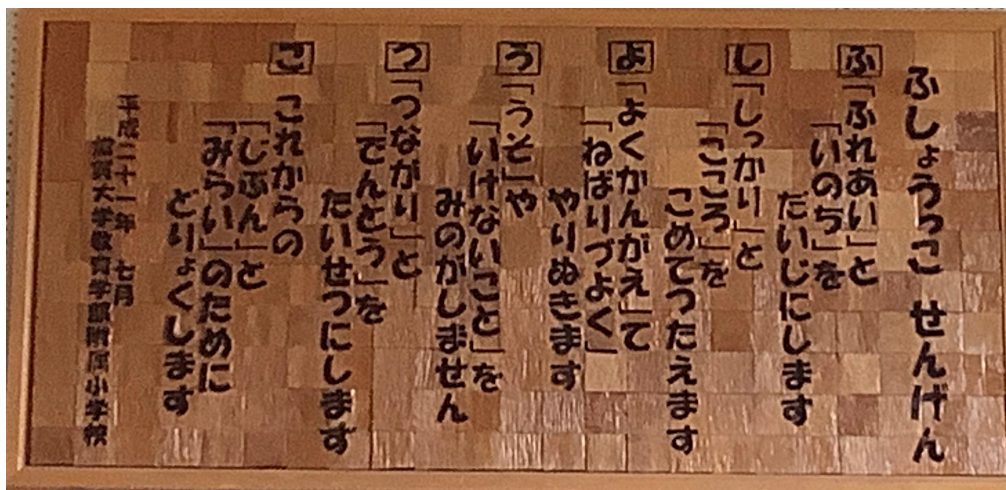 ふしょうっこ せんげん
ふ「ふれあい」と
「いのち」を
たいじにします
し「しっかり」と
「こころ」を
こめてつたえます
よ「よくかんがえ」て
「ねばりづよく」
やりぬきます
う「うそ」や
「いけないこと」を
みのがしません
つ「つながり」と
「でんとう」を
たいせつにします
こ これからの
「じぶん」と
「みらい」のために
どりょくします
平成二十一年 七月
滋賀大学教育学部附属小学校